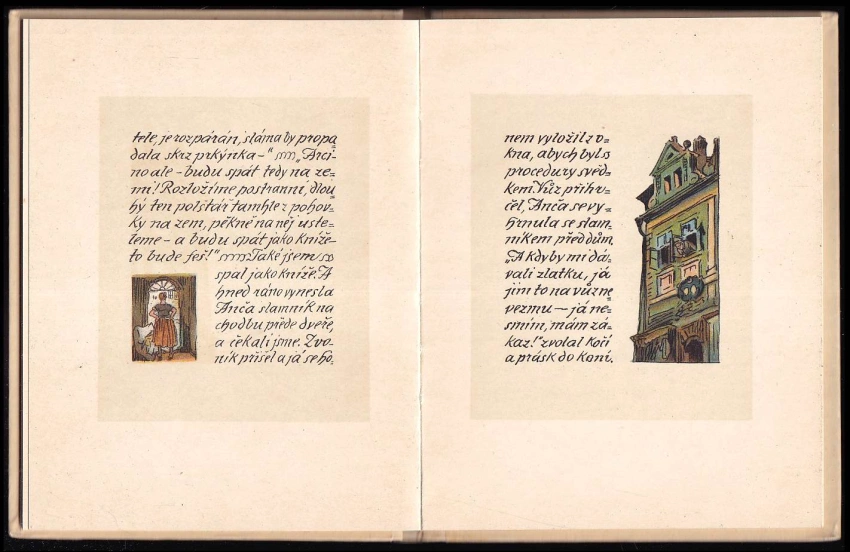 tele, je rozpárán, sláma by propa=
dala skrz prkýnka –"  „Arci=
no ale – budu spát tedy na ze=
mi! Rozložíme postranní, dlou=
hý ten polštář tamhle z pohov=
ky na zem, pěkně na něj uste=
leme – a budu spát jako kníže–
to bude feš!"  Také jsem
spal jako kníže. A
hned ráno vynesla
Anča slamník na
chodbu přede dveře,
a čekali jsme. Zvo=
ník přišel a já se ho.
nem vyložil z o=
kna, abych byl s
procedury svěd=
kem. Vůz přihr=
čel, Anča se vy=
hrnula se slam=
níkem před dům.
„A kdyby mi dá=
vali zlatku, já
jim to na vůz ne
vezmu – já ne=
smím, mám zá=
kaz!" zvolal kočí
a prásk do koní.